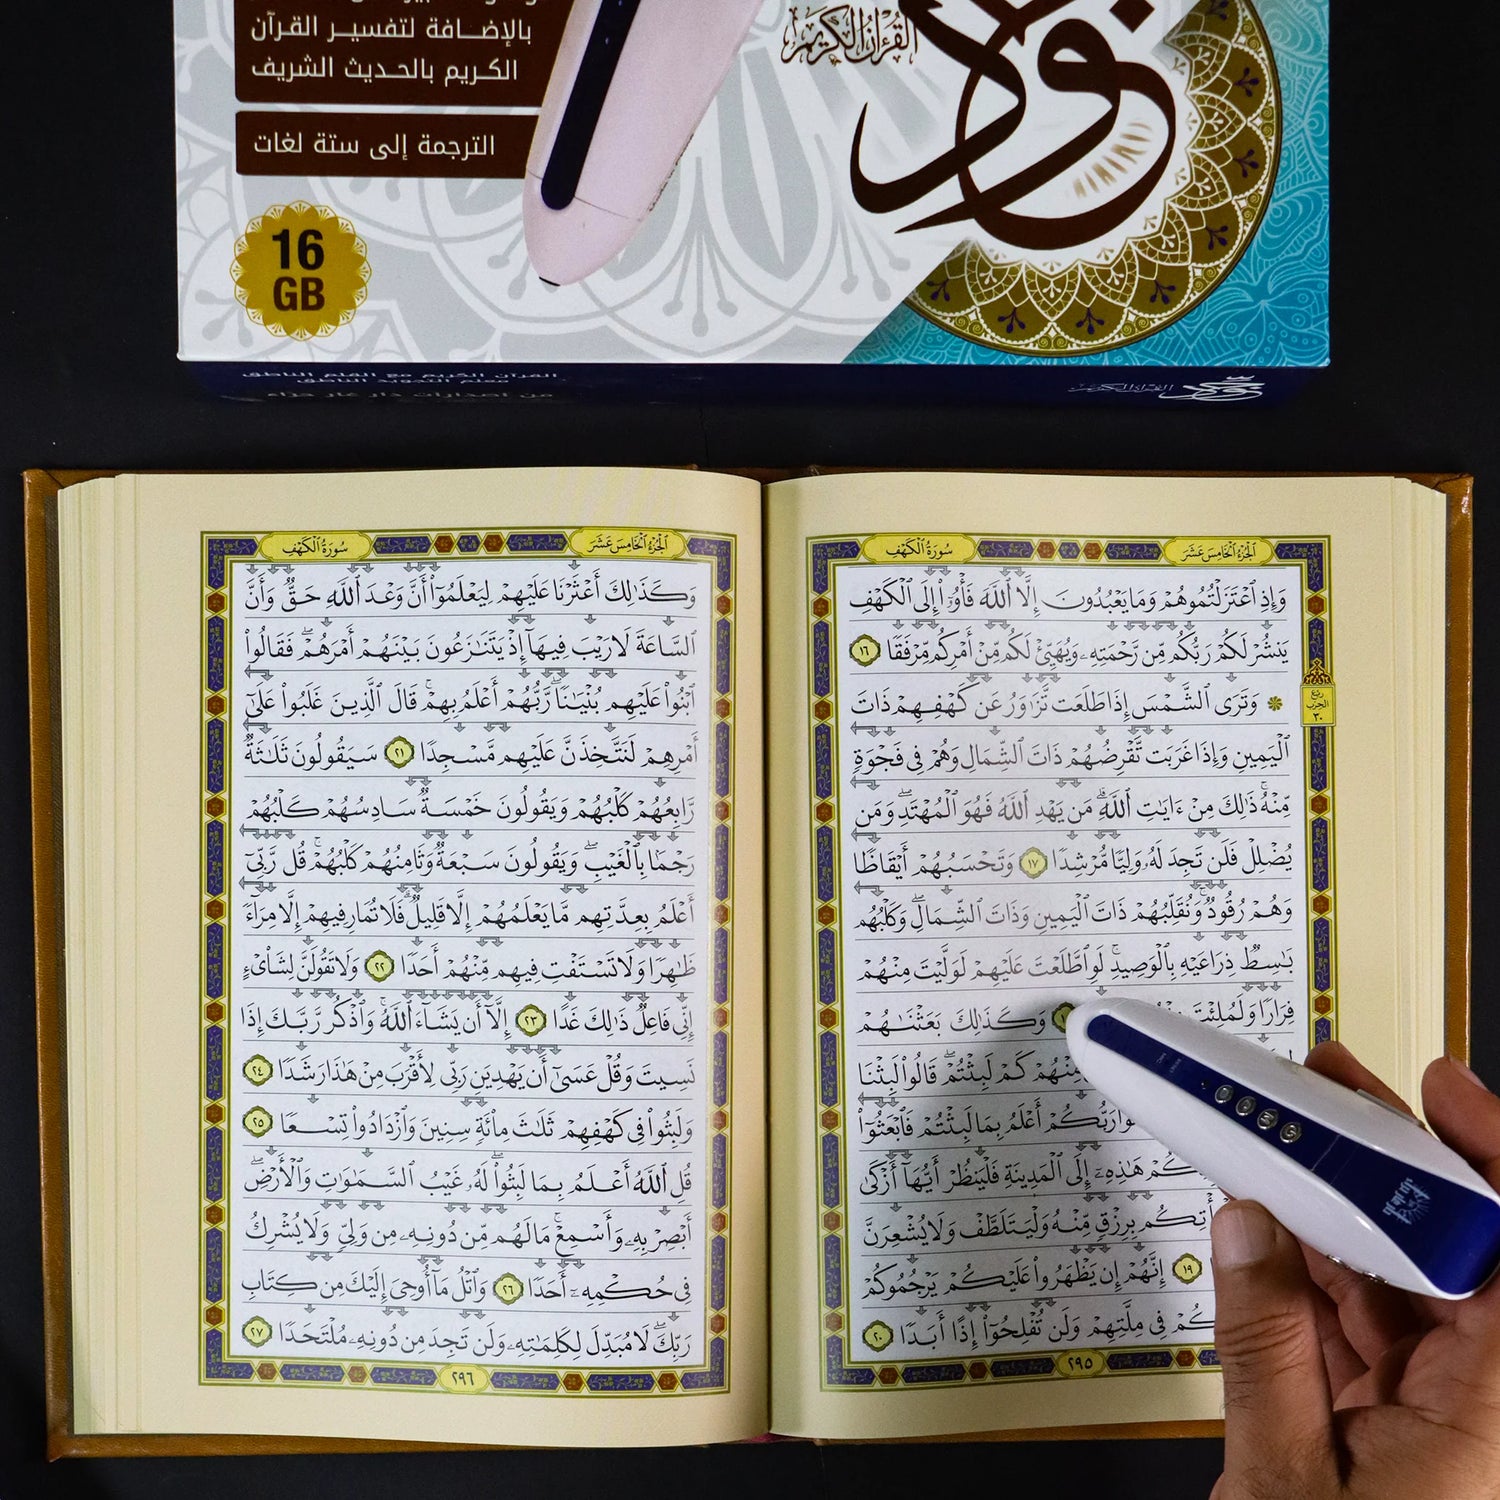 بالإضافة لتفسير القرآن
الكريم بالحديث الشريف
الترجمة إلى ستة لغات
16
GB
القرآن الكريم
نور
القرآن الكريم مع القلم الناطق
معلم التجويد الناطق
القرآن الكريم
نور
ٱلجُزءُ ٱلخَامِسَ عَشَرَ
سُورَةُ ٱلكَهۡفِ
وَإِذِ ٱعۡتَزَلۡتُمُوهُمۡ وَمَا يَعۡبُدُونَ إِلَّا ٱللَّهَ فَأۡوُۥٓاْ إِلَى ٱلۡكَهۡفِ
يَنشُرۡ لَكُمۡ رَبُّكُم مِّن رَّحۡمَتِهِۦ وَيُهَيِّئۡ لَكُم مِّنۡ أَمۡرِكُم مِّرۡفَقٗا ١٦
۞ وَتَرَى ٱلشَّمۡسَ إِذَا طَلَعَت تَّزَٰوَرُ عَن كَهۡفِهِمۡ ذَاتَ
ٱلۡيَمِينِ وَإِذَا غَرَبَت تَّقۡرِضُهُمۡ ذَاتَ ٱلشِّمَالِ وَهُمۡ فِي فَجۡوَةٖ
مِّنۡهُۚ ذَٰلِكَ مِنۡ ءَايَٰتِ ٱللَّهِۗ مَن يَهۡدِ ٱللَّهُ فَهُوَ ٱلۡمُهۡتَدِۖ وَمَن
يُضۡلِلۡ فَلَن تَجِدَ لَهُۥ وَلِيّٗا مُّرۡشِدٗا ١٧ وَتَحۡسَبُهُمۡ أَيۡقَاظٗا
وَهُمۡ رُقُودٞۚ وَنُقَلِّبُهُمۡ ذَاتَ ٱلۡيَمِينِ وَذَاتَ ٱلشِّمَالِۖ وَكَلۡبُهُم
بَٰسِطٞ ذِرَاعَيۡهِ بِٱلۡوَصِيدِۚ لَوِ ٱطَّلَعۡتَ عَلَيۡهِمۡ لَوَلَّيۡتَ مِنۡهُمۡ
فِرَارٗا وَلَمُلِئۡتَ وَكَذَٰلِكَ بَعَثۡنَٰهُمۡ
مِّنۡهُمۡ كَمۡ لَبِثۡتُمۡۖ قَالُواْ لَبِثۡنَا
رَبُّكُمۡ أَعۡلَمُ بِمَا لَبِثۡتُمۡ فَٱبۡعَثُوٓاْ
هَٰذِهِۦٓ إِلَى ٱلۡمَدِينَةِ فَلۡيَنظُرۡ أَيُّهَآ أَزۡكَىٰ
بِرِزۡقٖ مِّنۡهُ وَلۡيَتَلَطَّفۡ وَلَا يُشۡعِرَنَّ
١٩ إِنَّهُمۡ إِن يَظۡهَرُواْ عَلَيۡكُمۡ يَرۡجُمُوكُمۡ
فِي مِلَّتِهِمۡ وَلَن تُفۡلِحُوٓاْ إِذًا أَبَدٗا ٢٠
٢٩٥
ربع
الحزب
٣٠
ٱلجُزءُ ٱلخَامِسَ عَشَرَ
سُورَةُ ٱلكَهۡفِ
وَكَذَٰلِكَ أَعۡثَرۡنَا عَلَيۡهِمۡ لِيَعۡلَمُوٓاْ أَنَّ وَعۡدَ ٱللَّهِ حَقّٞ وَأَنَّ
ٱلسَّاعَةَ لَا رَيۡبَ فِيهَآ إِذۡ يَتَنَٰزَعُونَ بَيۡنَهُمۡ أَمۡرَهُمۡۖ فَقَالُواْ
ٱبۡنُواْ عَلَيۡهِم بُنۡيَٰنٗاۖ رَّبُّهُمۡ أَعۡلَمُ بِهِمۡۚ قَالَ ٱلَّذِينَ غَلَبُواْ عَلَىٰٓ
أَمۡرِهِمۡ لَنَتَّخِذَنَّ عَلَيۡهِم مَّسۡجِدٗا ٢١ سَيَقُولُونَ ثَلَٰثَةٞ
رَّابِعُهُمۡ كَلۡبُهُمۡ وَيَقُولُونَ خَمۡسَةٞ سَادِسُهُمۡ كَلۡبُهُمۡ
رَجۡمَۢا بِٱلۡغَيۡبِۖ وَيَقُولُونَ سَبۡعَةٞ وَثَامِنُهُمۡ كَلۡبُهُمۡۚ قُل رَّبِّيٓ
أَعۡلَمُ بِعِدَّتِهِم مَّا يَعۡلَمُهُمۡ إِلَّا قَلِيلٞۗ فَلَا تُمَارِ فِيهِمۡ إِلَّا مِرَآءٗ
ظَٰهِرٗا وَلَا تَسۡتَفۡتِ فِيهِم مِّنۡهُمۡ أَحَدٗا ٢٢ وَلَا تَقُولَنَّ لِشَاْيۡءٍ
إِنِّي فَاعِلٞ ذَٰلِكَ غَدًا ٢٣ إِلَّآ أَن يَشَآءَ ٱللَّهُۚ وَٱذۡكُر رَّبَّكَ إِذَا
نَسِيتَ وَقُلۡ عَسَىٰٓ أَن يَهۡدِيَنِ رَبِّي لِأَقۡرَبَ مِنۡ هَٰذَا رَشَدٗا ٢٤
وَلَبِثُواْ فِي كَهۡفِهِمۡ ثَلَٰثَ مِاْئَةٖ سِنِينَ وَٱزۡدَادُواْ تِسۡعٗا ٢٥
قُلِ ٱللَّهُ أَعۡلَمُ بِمَا لَبِثُواْۖ لَهُۥ غَيۡبُ ٱلسَّمَٰوَٰتِ وَٱلۡأَرۡضِۖ
أَبۡصِرۡ بِهِۦ وَأَسۡمِعۡۚ مَا لَهُم مِّن دُونِهِۦ مِن وَلِيّٖ وَلَا يُشۡرِكُ
فِي حُكۡمِهِۦٓ أَحَدٗا ٢٦ وَٱتۡلُ مَآ أُوحِيَ إِلَيۡكَ مِن كِتَابِ
رَبِّكَۖ لَا مُبَدِّلَ لِكَلِمَٰتِهِۦ وَلَن تَجِدَ مِن دُونِهِۦ مُلۡتَحَدٗا ٢٧
٢٩٦